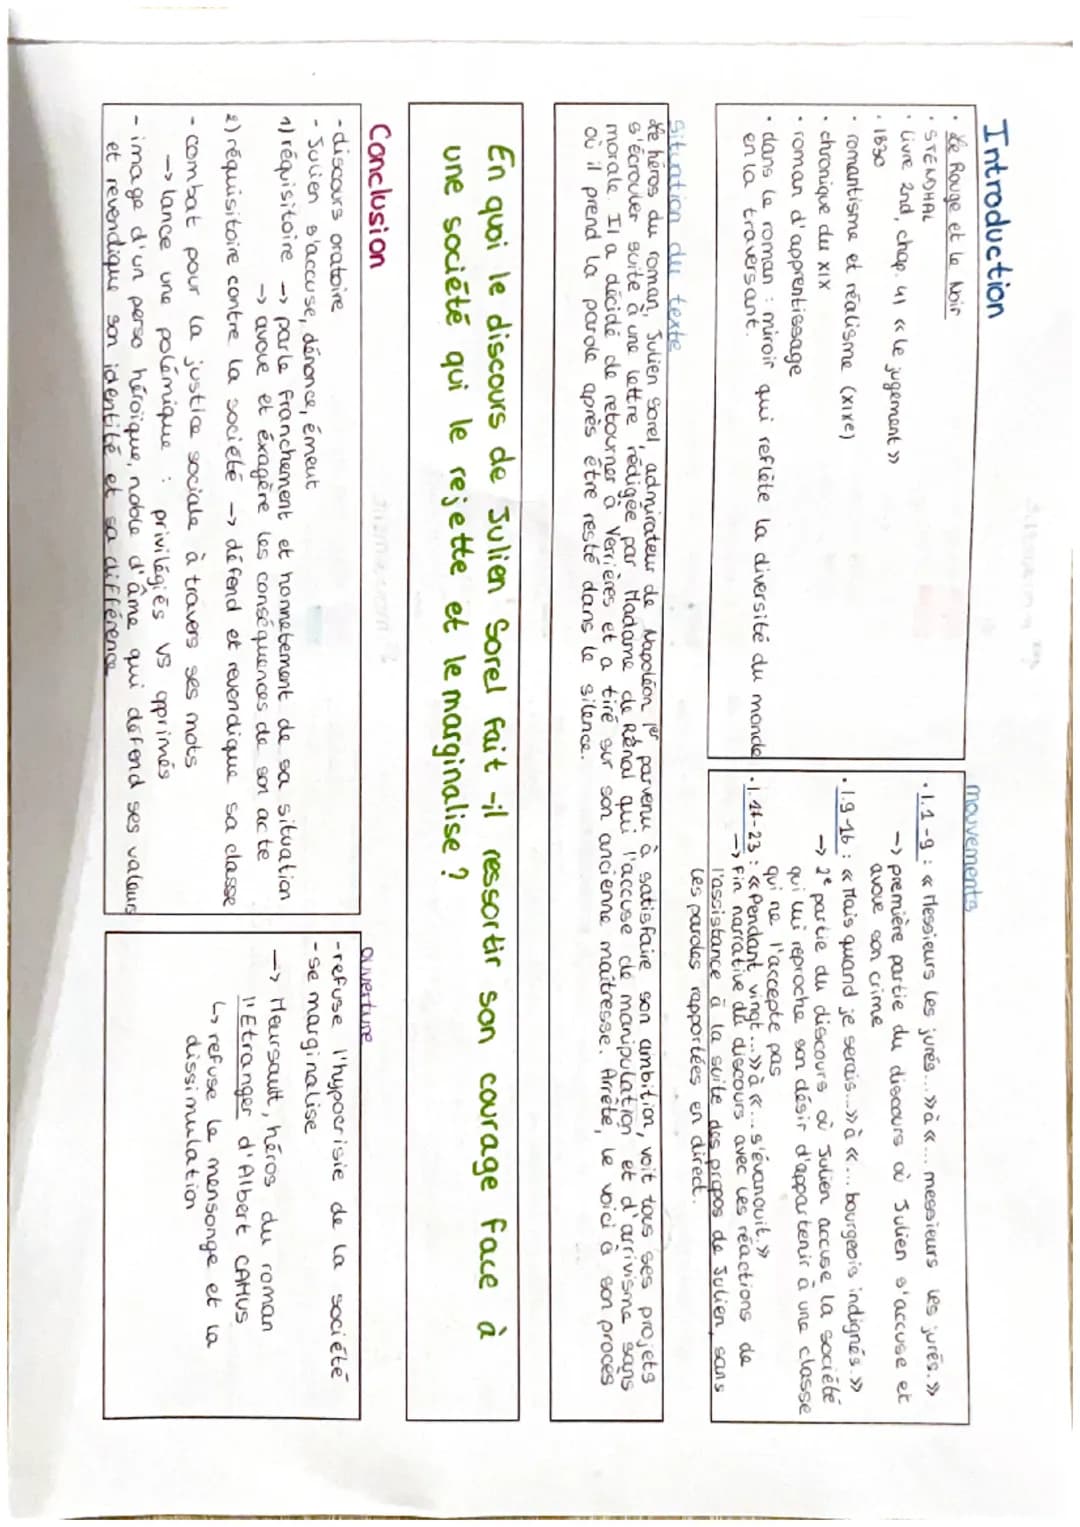 Introduction
• Le Rouge et le Noir
• STENDHAL
• livre 2nd, chap. 41 « le jugement »
• 1830
• romantisme et réalisme (XIXe)
• chronique du XIX
• roman d'apprentissage
• dans le roman : miroir qui reflète la diversité du monde
en la traversant.
mouvements
• l.1-9 : « Messieurs les jurés... » à « ... messieurs les jurés. »
→ première partie du discours où Julien s'accuse et
avoue son crime
• l.9-16 : « Mais quand je serais... » à « ... bourgeois indignés. »
→ 2e partie du discours où Julien accuse la société
qui lui reproche son désir d'appartenir à une classe
qui ne l'accepte pas
• l.17-23 : « Pendant vingt... » à « ... s'évanouit. »
→ Fin narrative du discours avec les réactions de
l'assistance à la suite des propos de Julien, sans
les paroles rapportées en direct.
Situation du texte
Le héros du roman, Julien Sorel, admirateur de Napoléon 1er parvenu à satisfaire son ambition, voit tous ses projets
s'écrouler suite à une lettre rédigée par Madame de Rênal qui l'accuse de manipulation et d'arrivisme sans
morale. Il a décidé de retourner à Verrières et a tiré sur son ancienne maîtresse. Arrêté, le voici à son procès
où il prend la parole après être resté dans le silence.
En quoi le discours de Julien Sorel fait-il ressortir son courage face à
une société qui le rejette et le marginalise ?
Conclusion
- discours oratoire
- Julien s'accuse, dénonce, émeut
1) réquisitoire → parle franchement et honnetement de sa situation
→ avoue et éxagère les conséquences de son acte
2) réquisitoire contre la société → défend et revendique sa classe
- combat pour la justice sociale à travers ses mots
→ lance une polémique : privilégiés vs opprimés
- image d'un perso héroïque, noble d'âme qui défend ses valeurs
et revendique son identité et sa différence
ouverture
- refuse l'hypocrisie de la société
- se marginalise
→ Meursault, héros du roman
l'Etranger d'Albert CAMUS
↳ refuse le mensonge et la
dissimulation